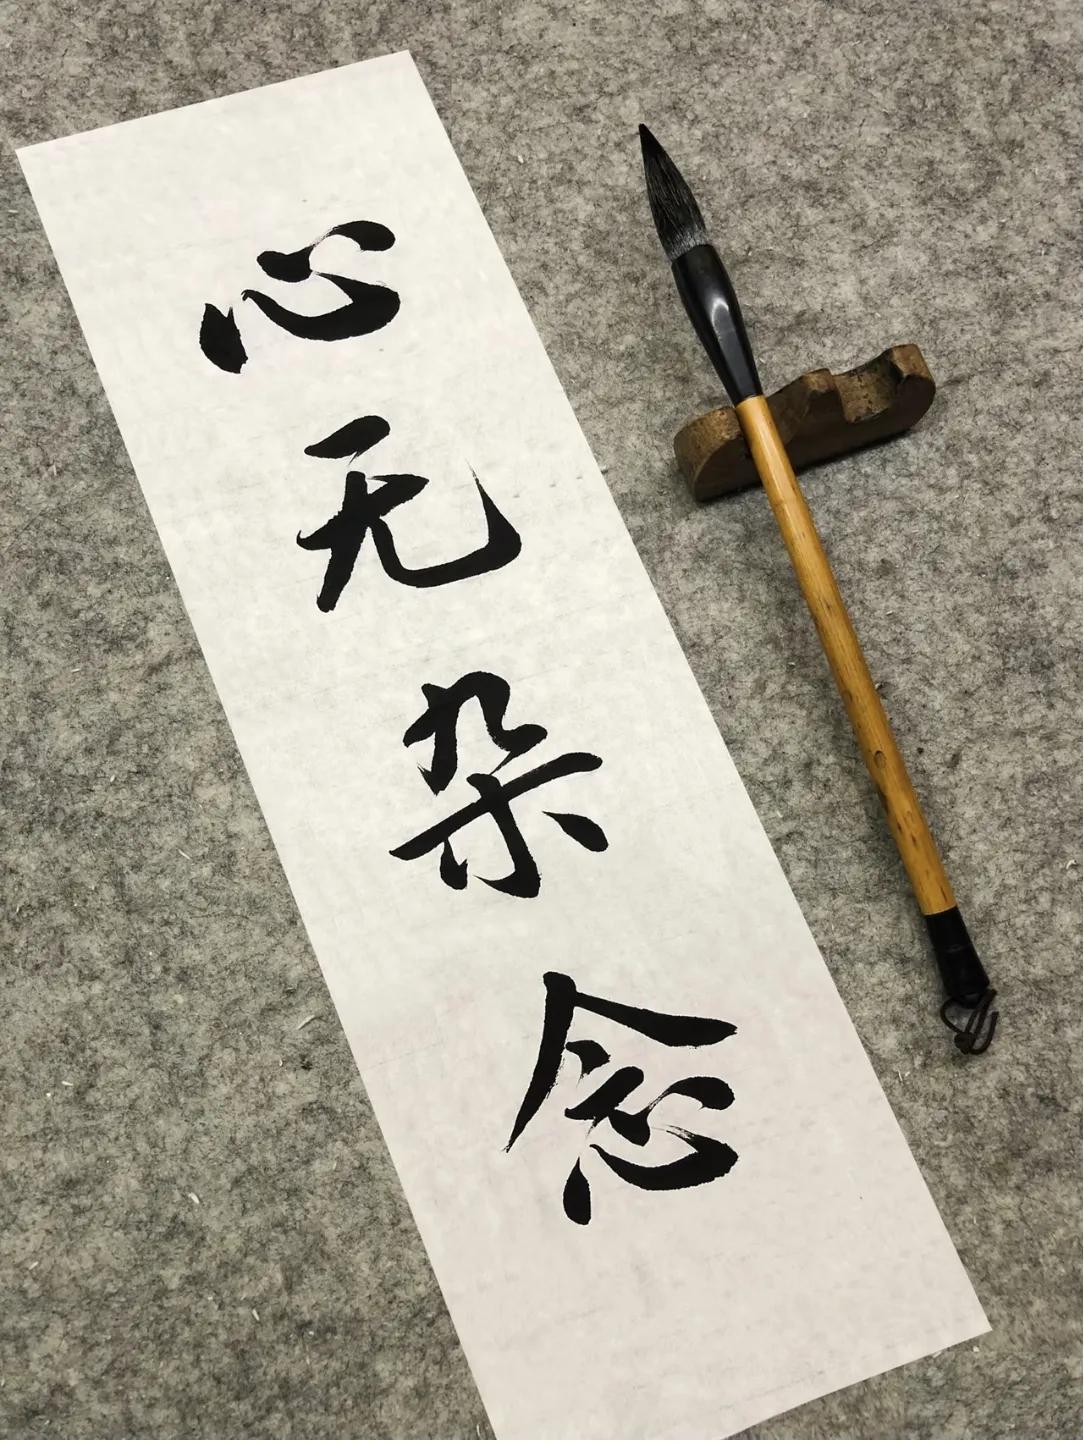 心无杂念